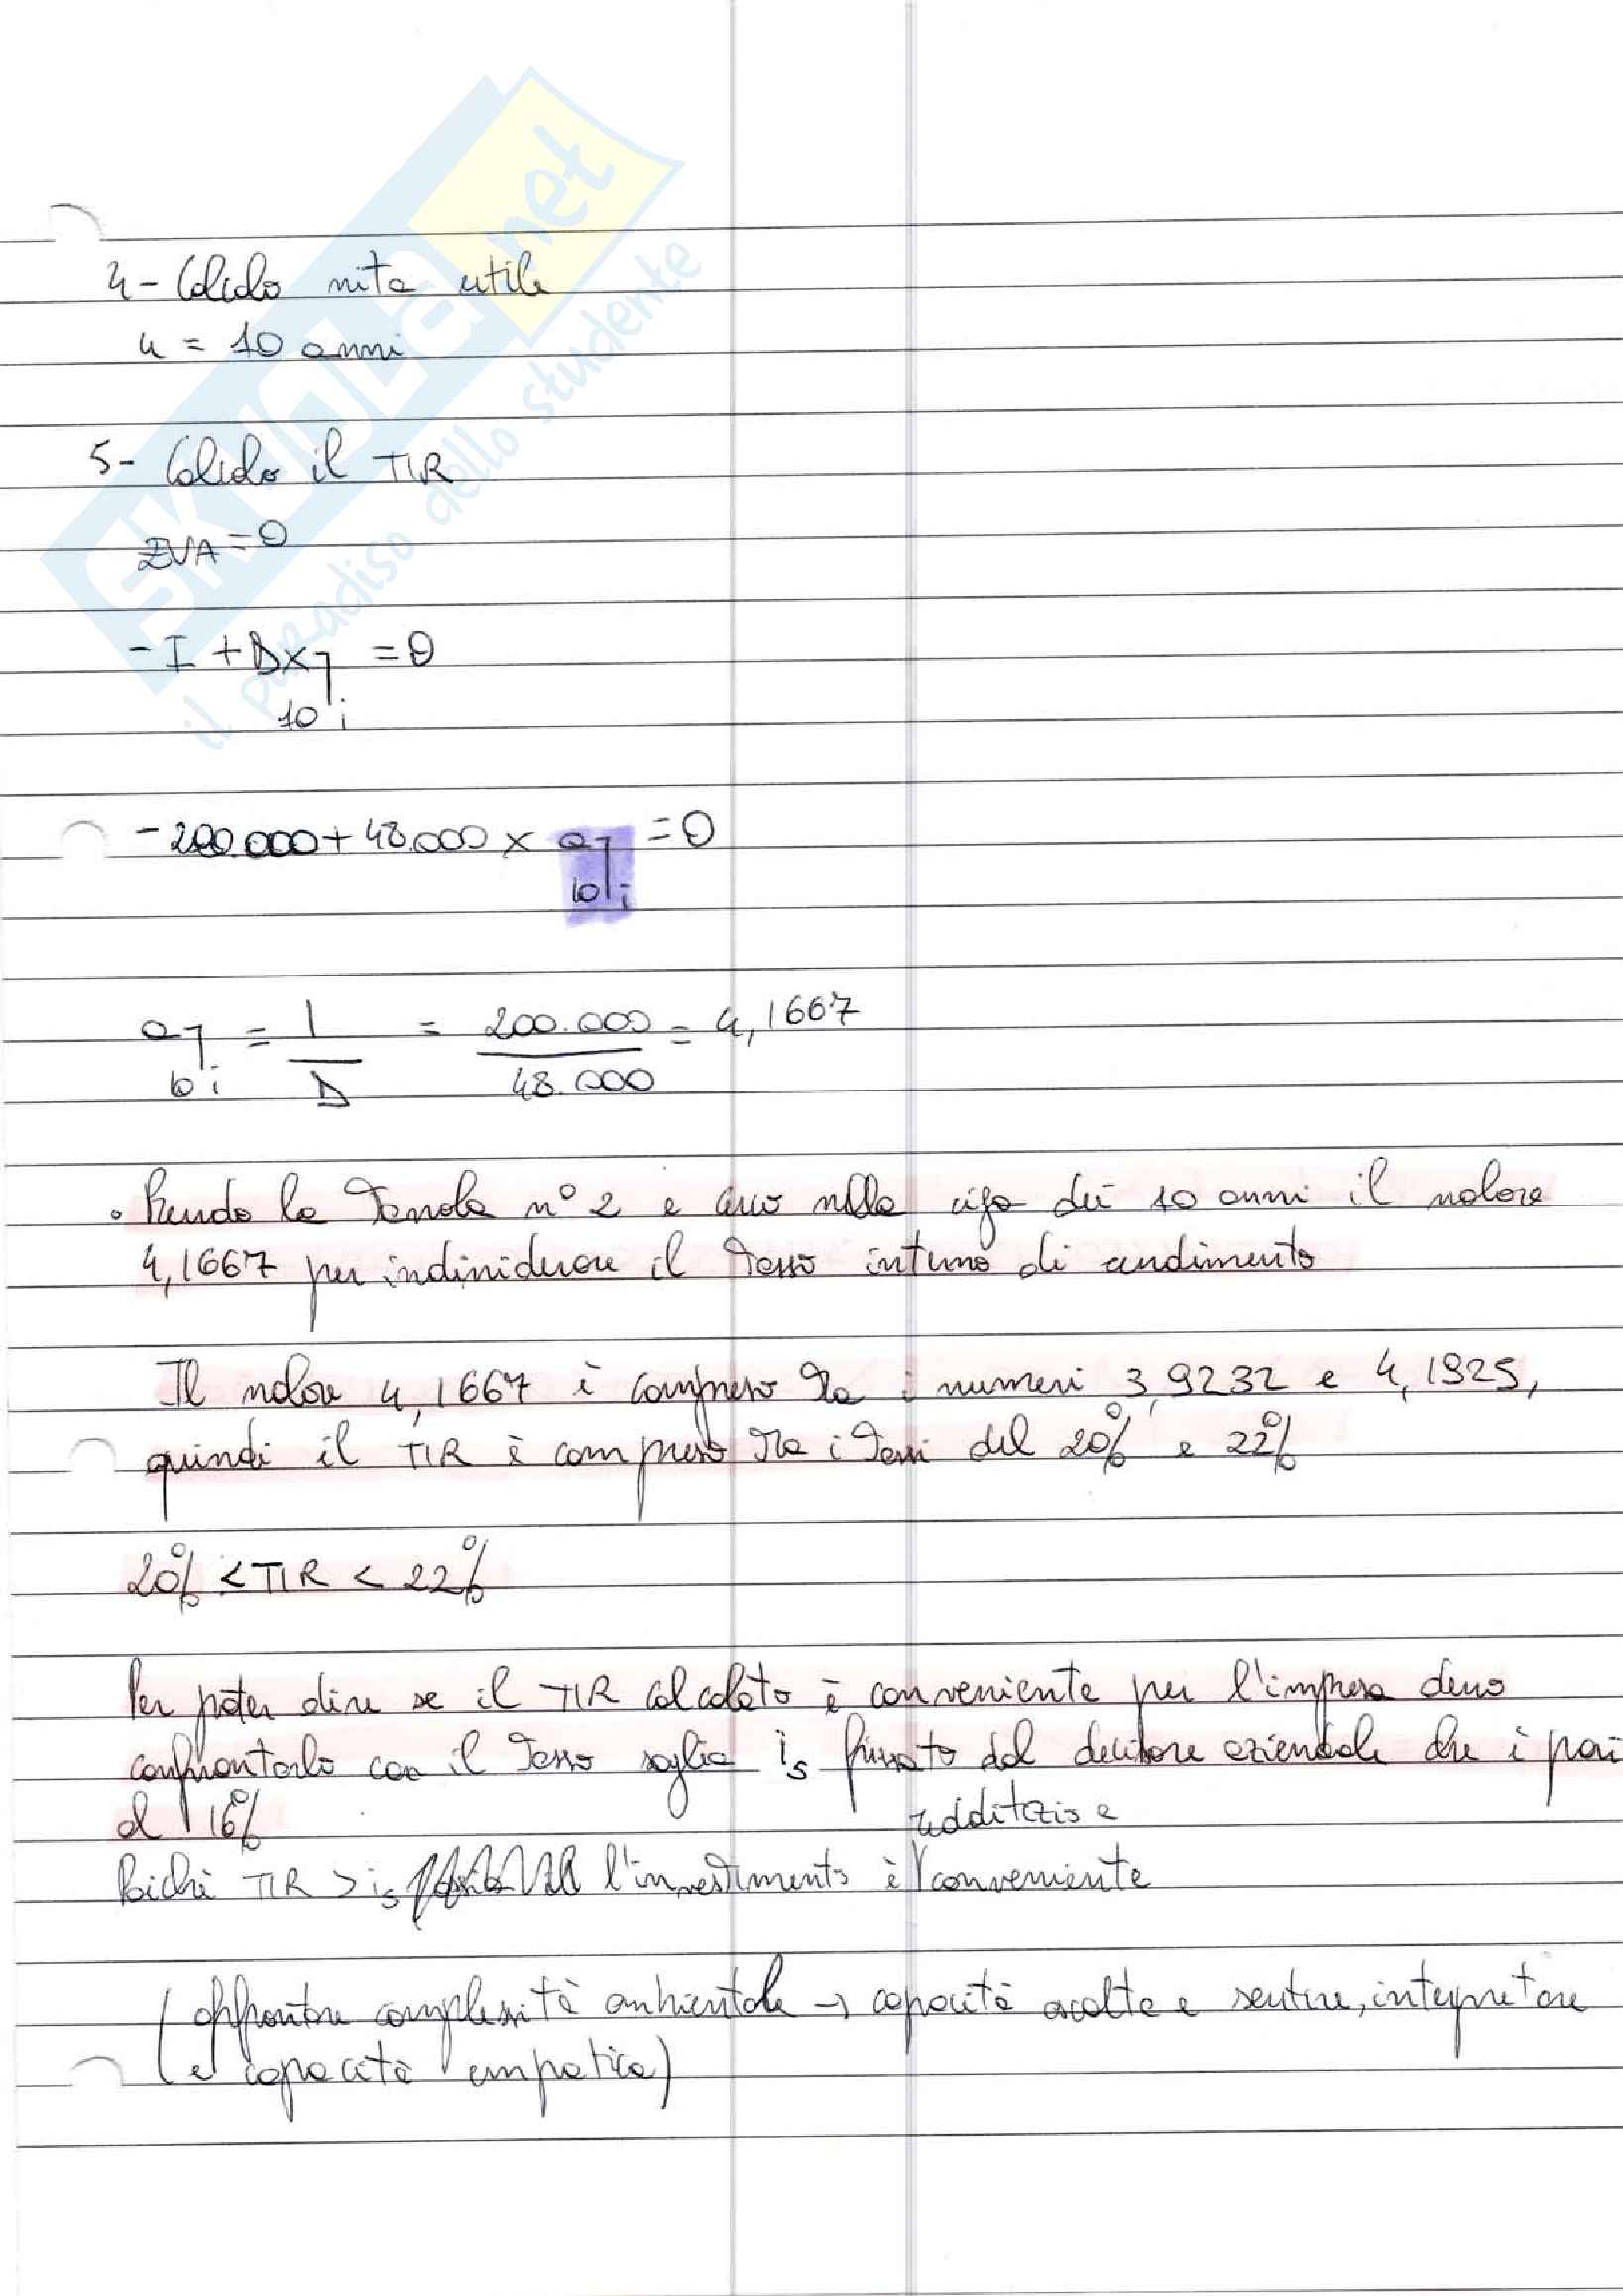 SKUOLA.net
il paradiso dello studente
4- Calcolo vita utile
n = 10 anni
5- Calcolo il TIR
ΣVA = 0
- I + D x ┐ = 0
10 i
- 200.000 + 48.000 x a┐ = 0
10 i
a┐ = I = 200.000 = 4,1667
10 i D 48.000
• Prendo la Tavola n° 2 e cerco nella riga dei 10 anni il valore
4,1667 per individuare il Tasso interno di rendimento
Il valore 4,1667 è compreso tra i numeri 3,9232 e 4,1925,
quindi il TIR è compreso tra i Tassi del 20% e 22%
20% < TIR < 22%
Per poter dire se il TIR calcolato è conveniente per l'impresa devo
confrontarlo con il Tasso soglia is fissato dal decisore aziendale che è pari
al 16%
redditizio e
Poiché TIR > is l'investimento è conveniente
(affrontare complessità ambientale → capacità ascolto e sentire, interpretare
e capacità empatica)